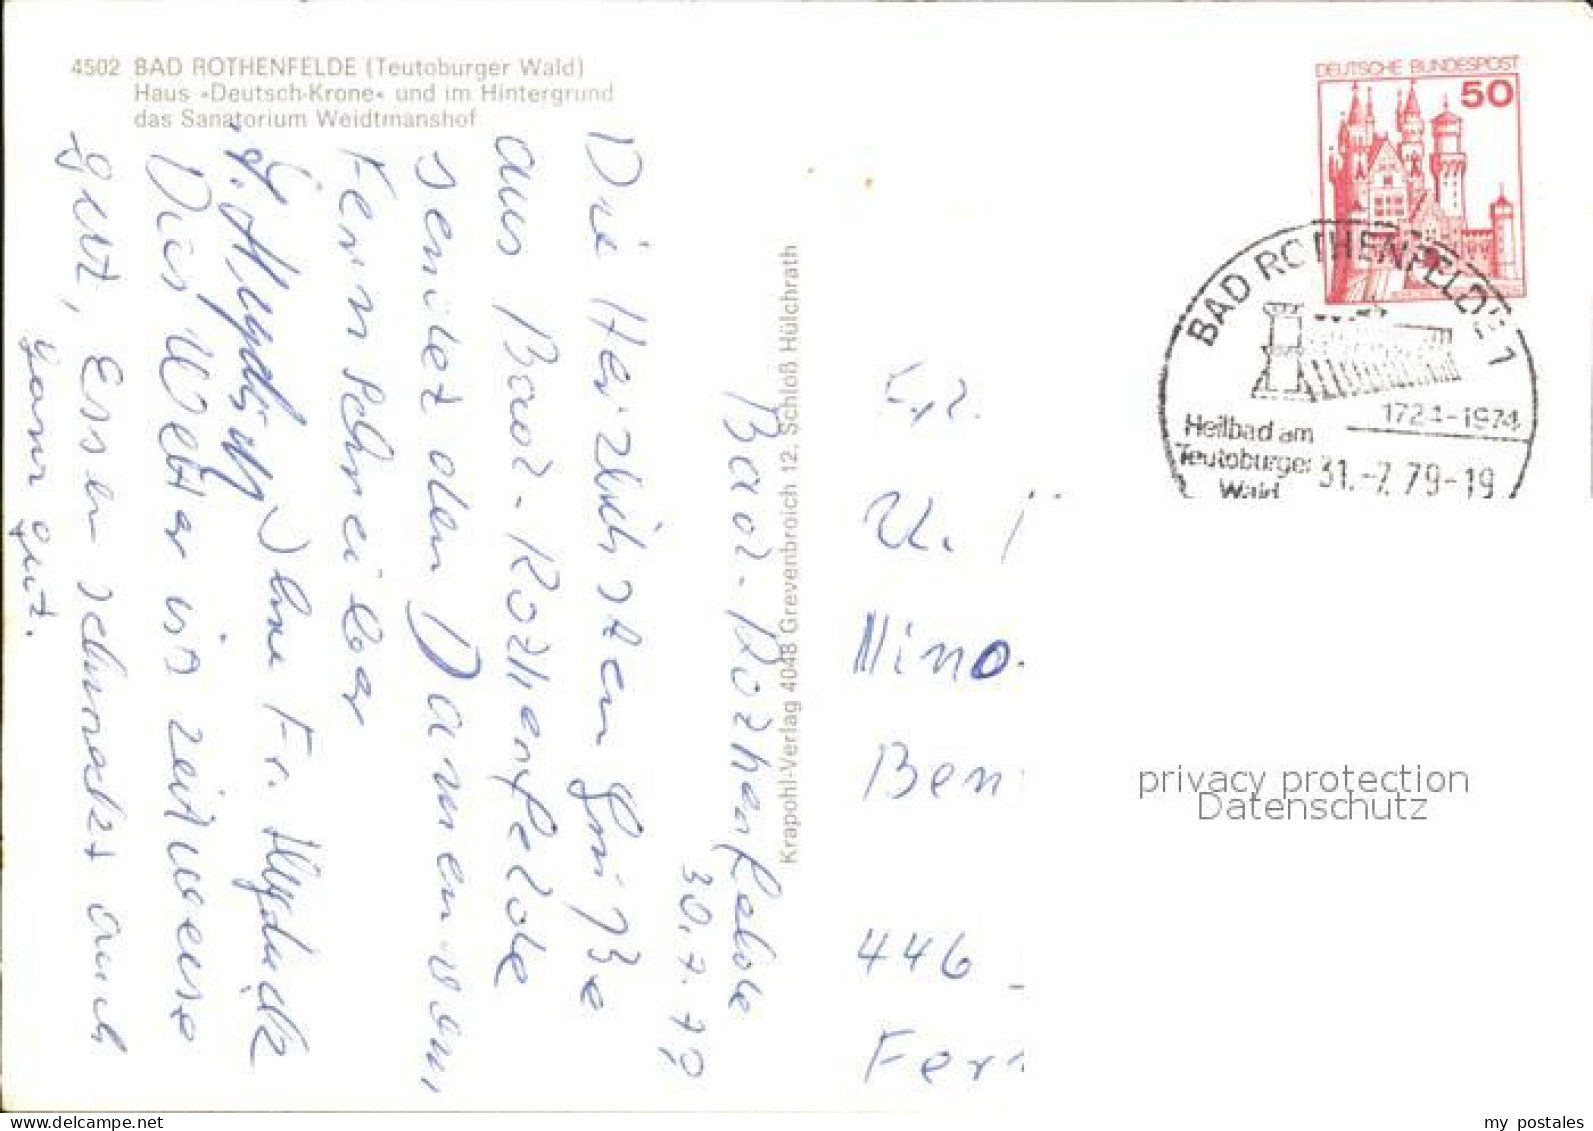 4502 BAD ROTHENFELDE (Teutoburger Wald)
Haus »Deutsch-Krone« und im Hintergrund
das Sanatorium Weidtmanshof
Bad-Rothenfelde
30.7.79
Die Herzlichsten Grüße
aus Bad-Rothenfelde
sendet den Damen vom
Fernschreiber
Ihre Fr.
Das Wetter ist zeitweise
gut, Essen schmeckt auch
ganz gut.
Krapohl-Verlag 4048 Grevenbroich 12, Schloß Hülchrath
DEUTSCHE BUNDESPOST
50
BAD ROTHENFELDE 1
1724-1974
Heilbad am
Teutoburger
Wald
31.-7.79-19
Frl.
U.
Nino
Ben
446
Fern
privacy protection
Datenschutz
www.delcampe.net
my_postales